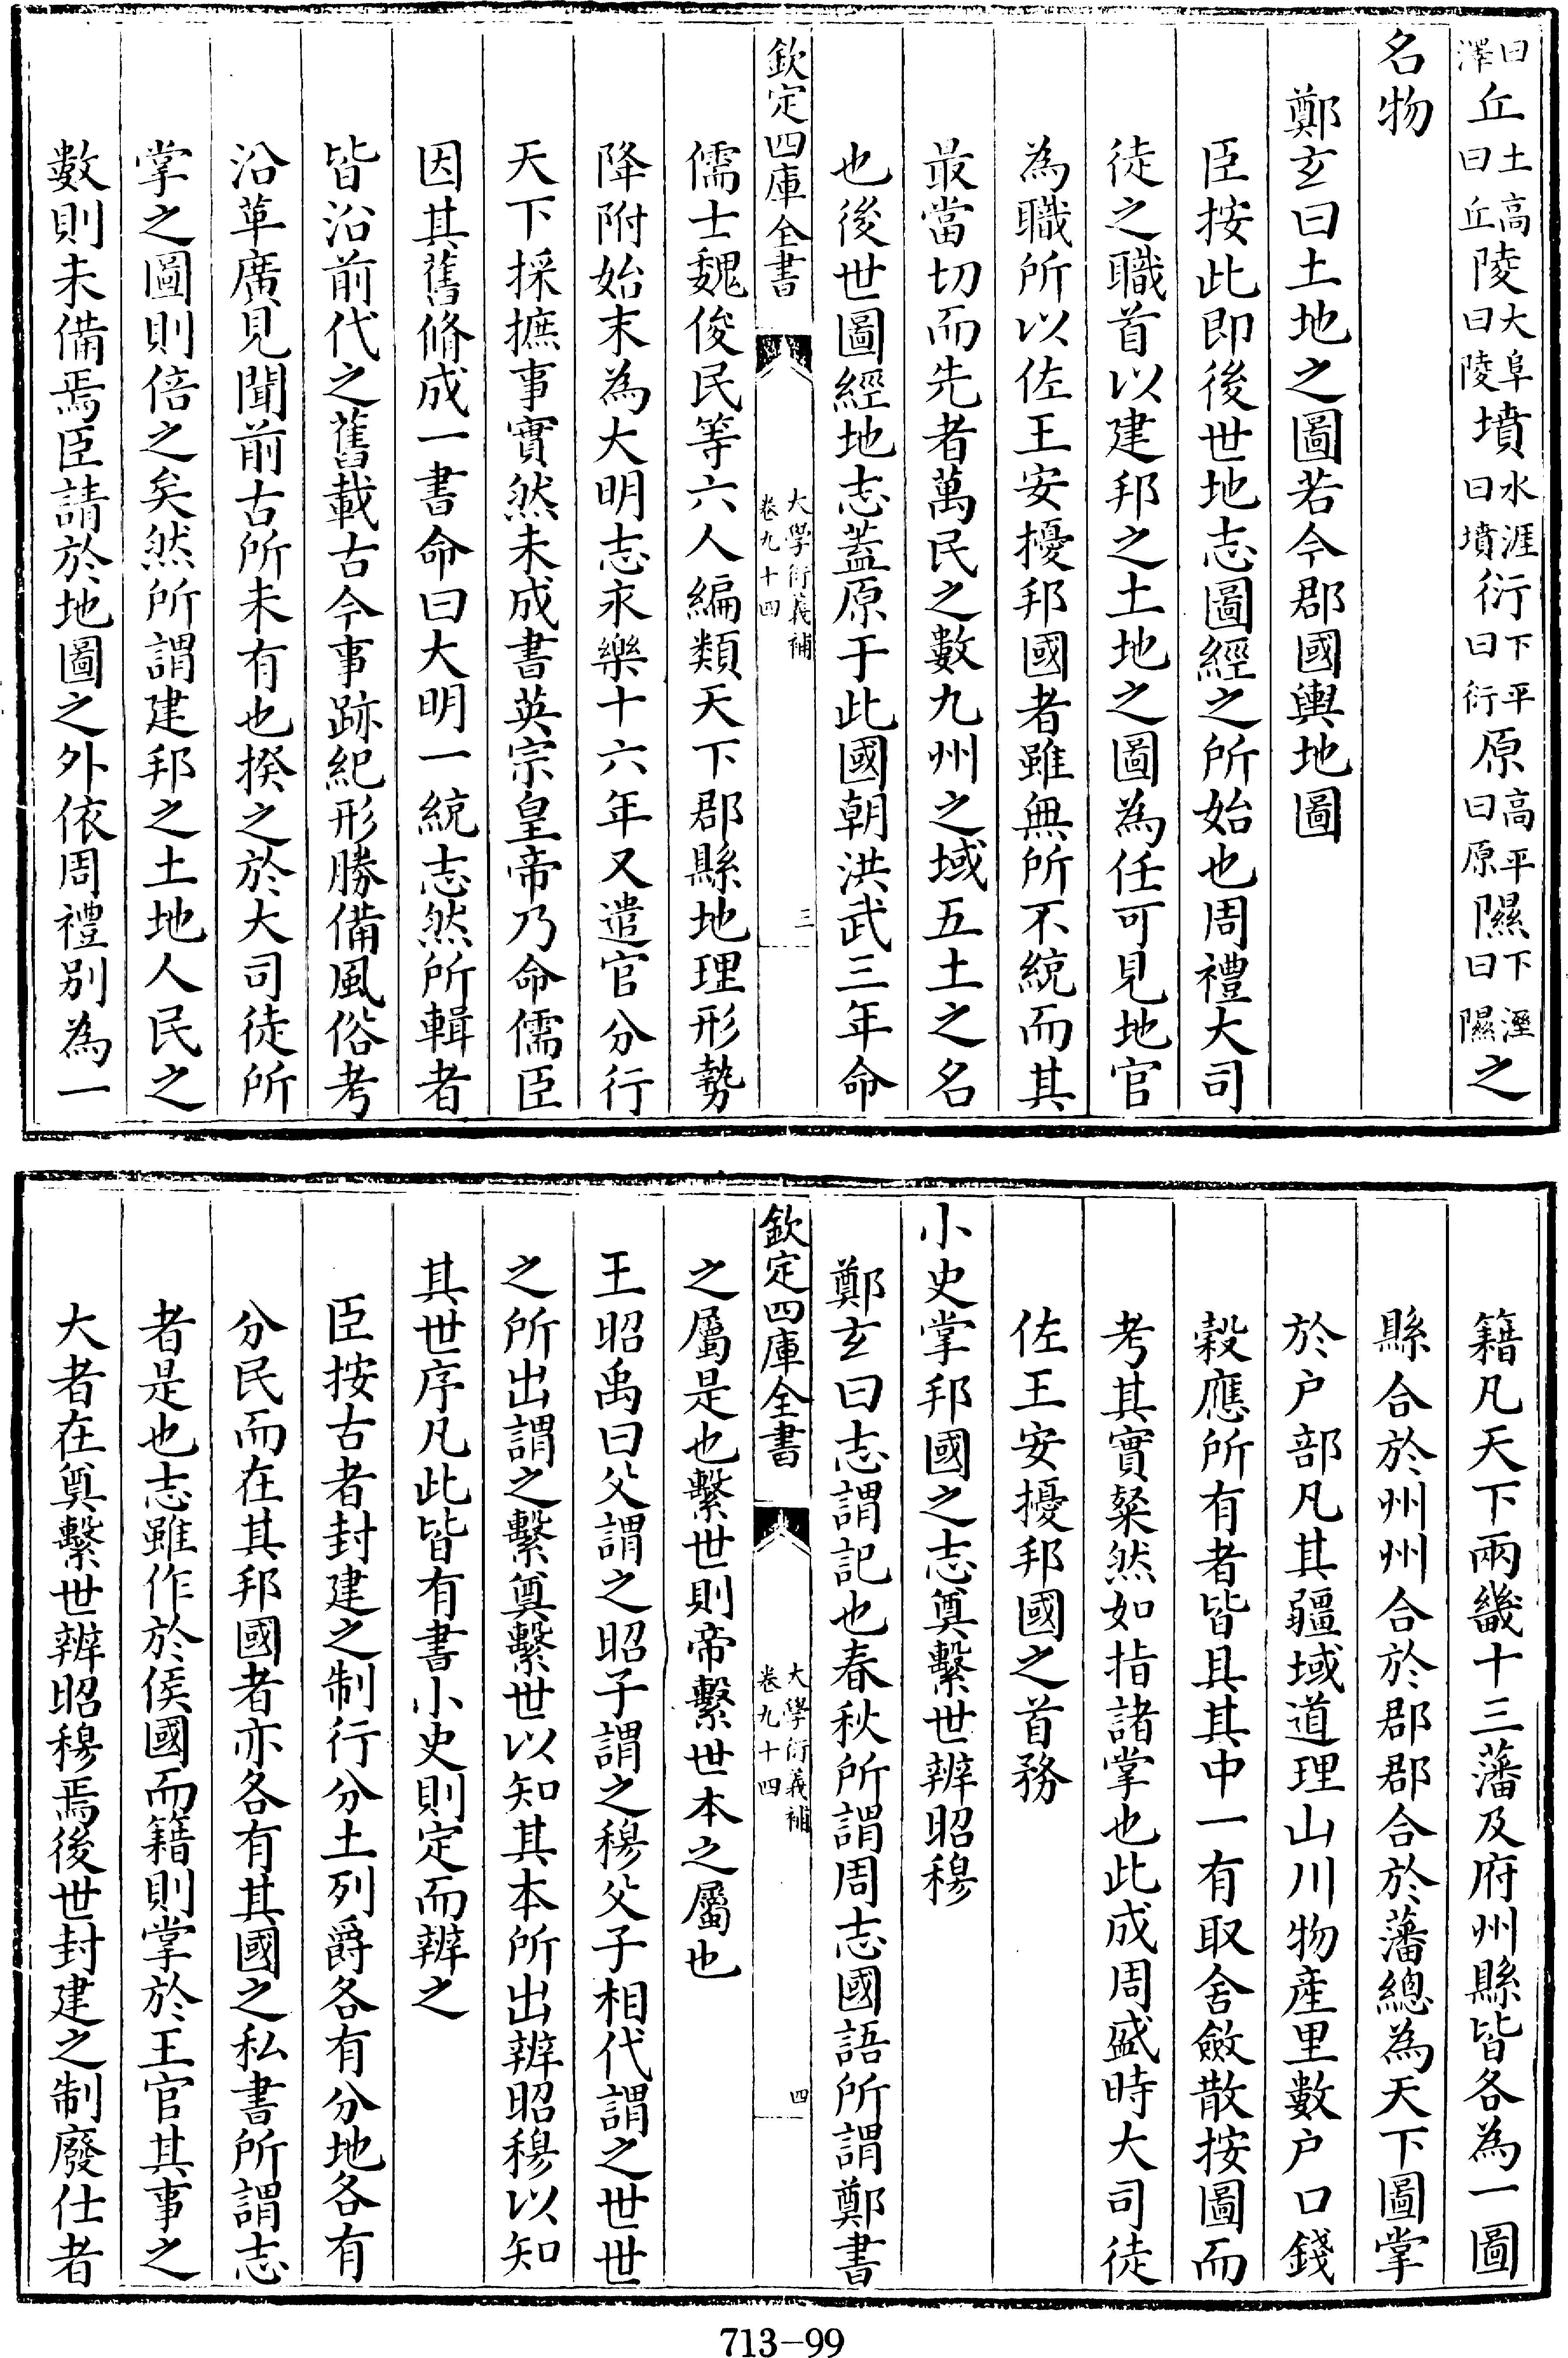 曰澤丘土高曰丘陵大阜曰陵墳水涯曰墳衍下平曰衍原高平曰原隰下溼曰隰之
名物
鄭玄曰土地之圖若今郡國輿地圖
臣按此即後世地志圖經之所始也周禮大司
徒之職首以建邦之土地之圖為任可見地官
為職所以佐王安擾邦國者雖無所不統而其
最當切而先者萬民之數九州之域五土之名
也後世圖經地志蓋原于此國朝洪武三年命
欽定四庫全書
大學衍義補
卷九十四
三
儒士魏俊民等六人編類天下郡縣地理形勢
降附始末為大明志永樂十六年又遣官分行
天下採摭事實然未成書英宗皇帝乃命儒臣
因其舊脩成一書命曰大明一統志然所輯者
皆沿前代之舊載古今事跡紀形勝備風俗考
沿革廣見聞前古所未有也揆之於大司徒所
掌之圖則倍之矣然所謂建邦之土地人民之
數則未備焉臣請於地圖之外依周禮別為一
籍凡天下兩畿十三藩及府州縣皆各為一圖
縣合於州州合於郡郡合於藩總為天下圖掌
於户部凡其疆域道理山川物産里數户口錢
穀應所有者皆具其中一有取舍斂散按圖而
考其實粲然如指諸掌也此成周盛時大司徒
佐王安擾邦國之首務
小史掌邦國之志奠繫世辨昭穆
鄭玄曰志謂記也春秋所謂周志國語所謂鄭書
欽定四庫全書
大學衍義補
卷九十四
四
之屬是也繫世則帝繫世本之屬也
王昭禹曰父謂之昭子謂之穆父子相代謂之世世
之所出謂之繫奠繫世以知其本所出辨昭穆以知
其世序凡此皆有書小史則定而辨之
臣按古者封建之制行分土列爵各有分地各有
分民而在其邦國者亦各有其國之私書所謂志
者是也志雖作於侯國而籍則掌於王官其事之
大者在奠繫世辨昭穆焉後世封建之制廢仕者
713-99